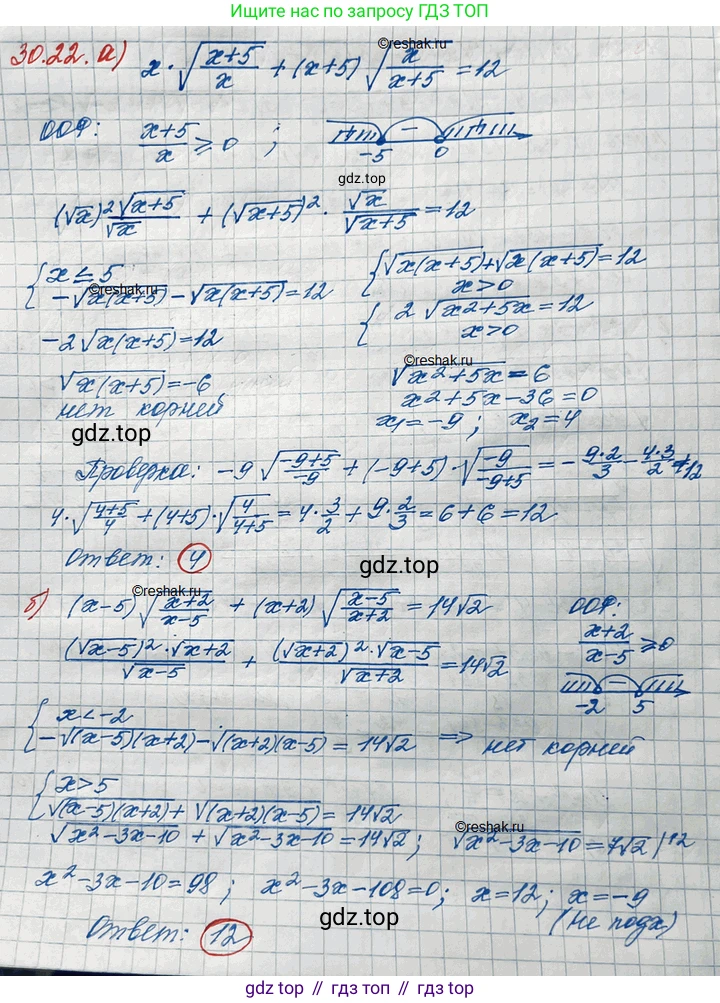 Ищите ответ по запросу ГДЗ ТОП
30.22. а) x · √((x+5)/x) + (x+5) √(x/(x+5)) = 12
©reshak.ru
ООФ: (x+5)/x ≥ 0 ; -5 − 0
gdz.top
(√x)² √(x+5)/√x + (√(x+5))² · √x/√(x+5) = 12
{ x ≤ 5
-√(x(x+5)) - √(x(x+5)) = 12
-2√(x(x+5)) = 12
√(x(x+5)) = -6
нет корней
{ √(x(x+5)) + √(x(x+5)) = 12
x > 0
{ 2 √(x²+5x) = 12
x > 0
©reshak.ru
√(x²+5x) = 6
x²+5x-36=0
x₁=-9 ; x₂=4
gdz.top
Проверка: -9 √((-9+5)/-9) + (-9+5) · √(-9/(-9+5)) = - 9·2/3 - 4·3/2 ≠ 12
4·√((4+5)/4) + (4+5)·√(4/(4+5)) = 4·3/2 + 9·2/3 = 6+6 = 12
Ответ: 4
gdz.top
©reshak.ru
б) (x-5) √((x+2)/(x-5)) + (x+2) √((x-5)/(x+2)) = 14√2
ООФ:
(x+2)/(x-5) ≥ 0
-2 − 5
(√(x-5))²·√(x+2)/√(x-5) + (√(x+2))²·√(x-5)/√(x+2) = 14√2
{ x < -2
-√((x-5)(x+2)) - √((x+2)(x-5)) = 14√2 => нет корней
{ x > 5
√((x-5)(x+2)) + √((x+2)(x-5)) = 14√2
©reshak.ru
√(x²-3x-10) + √(x²-3x-10) = 14√2 ; √(x²-3x-10) = 7√2 |↑2
x²-3x-10=98 ; x²-3x-108=0; x=12; x=-9
(не подх)
Ответ: 12
gdz.top
gdz.top // гдз.топ // gdz.top